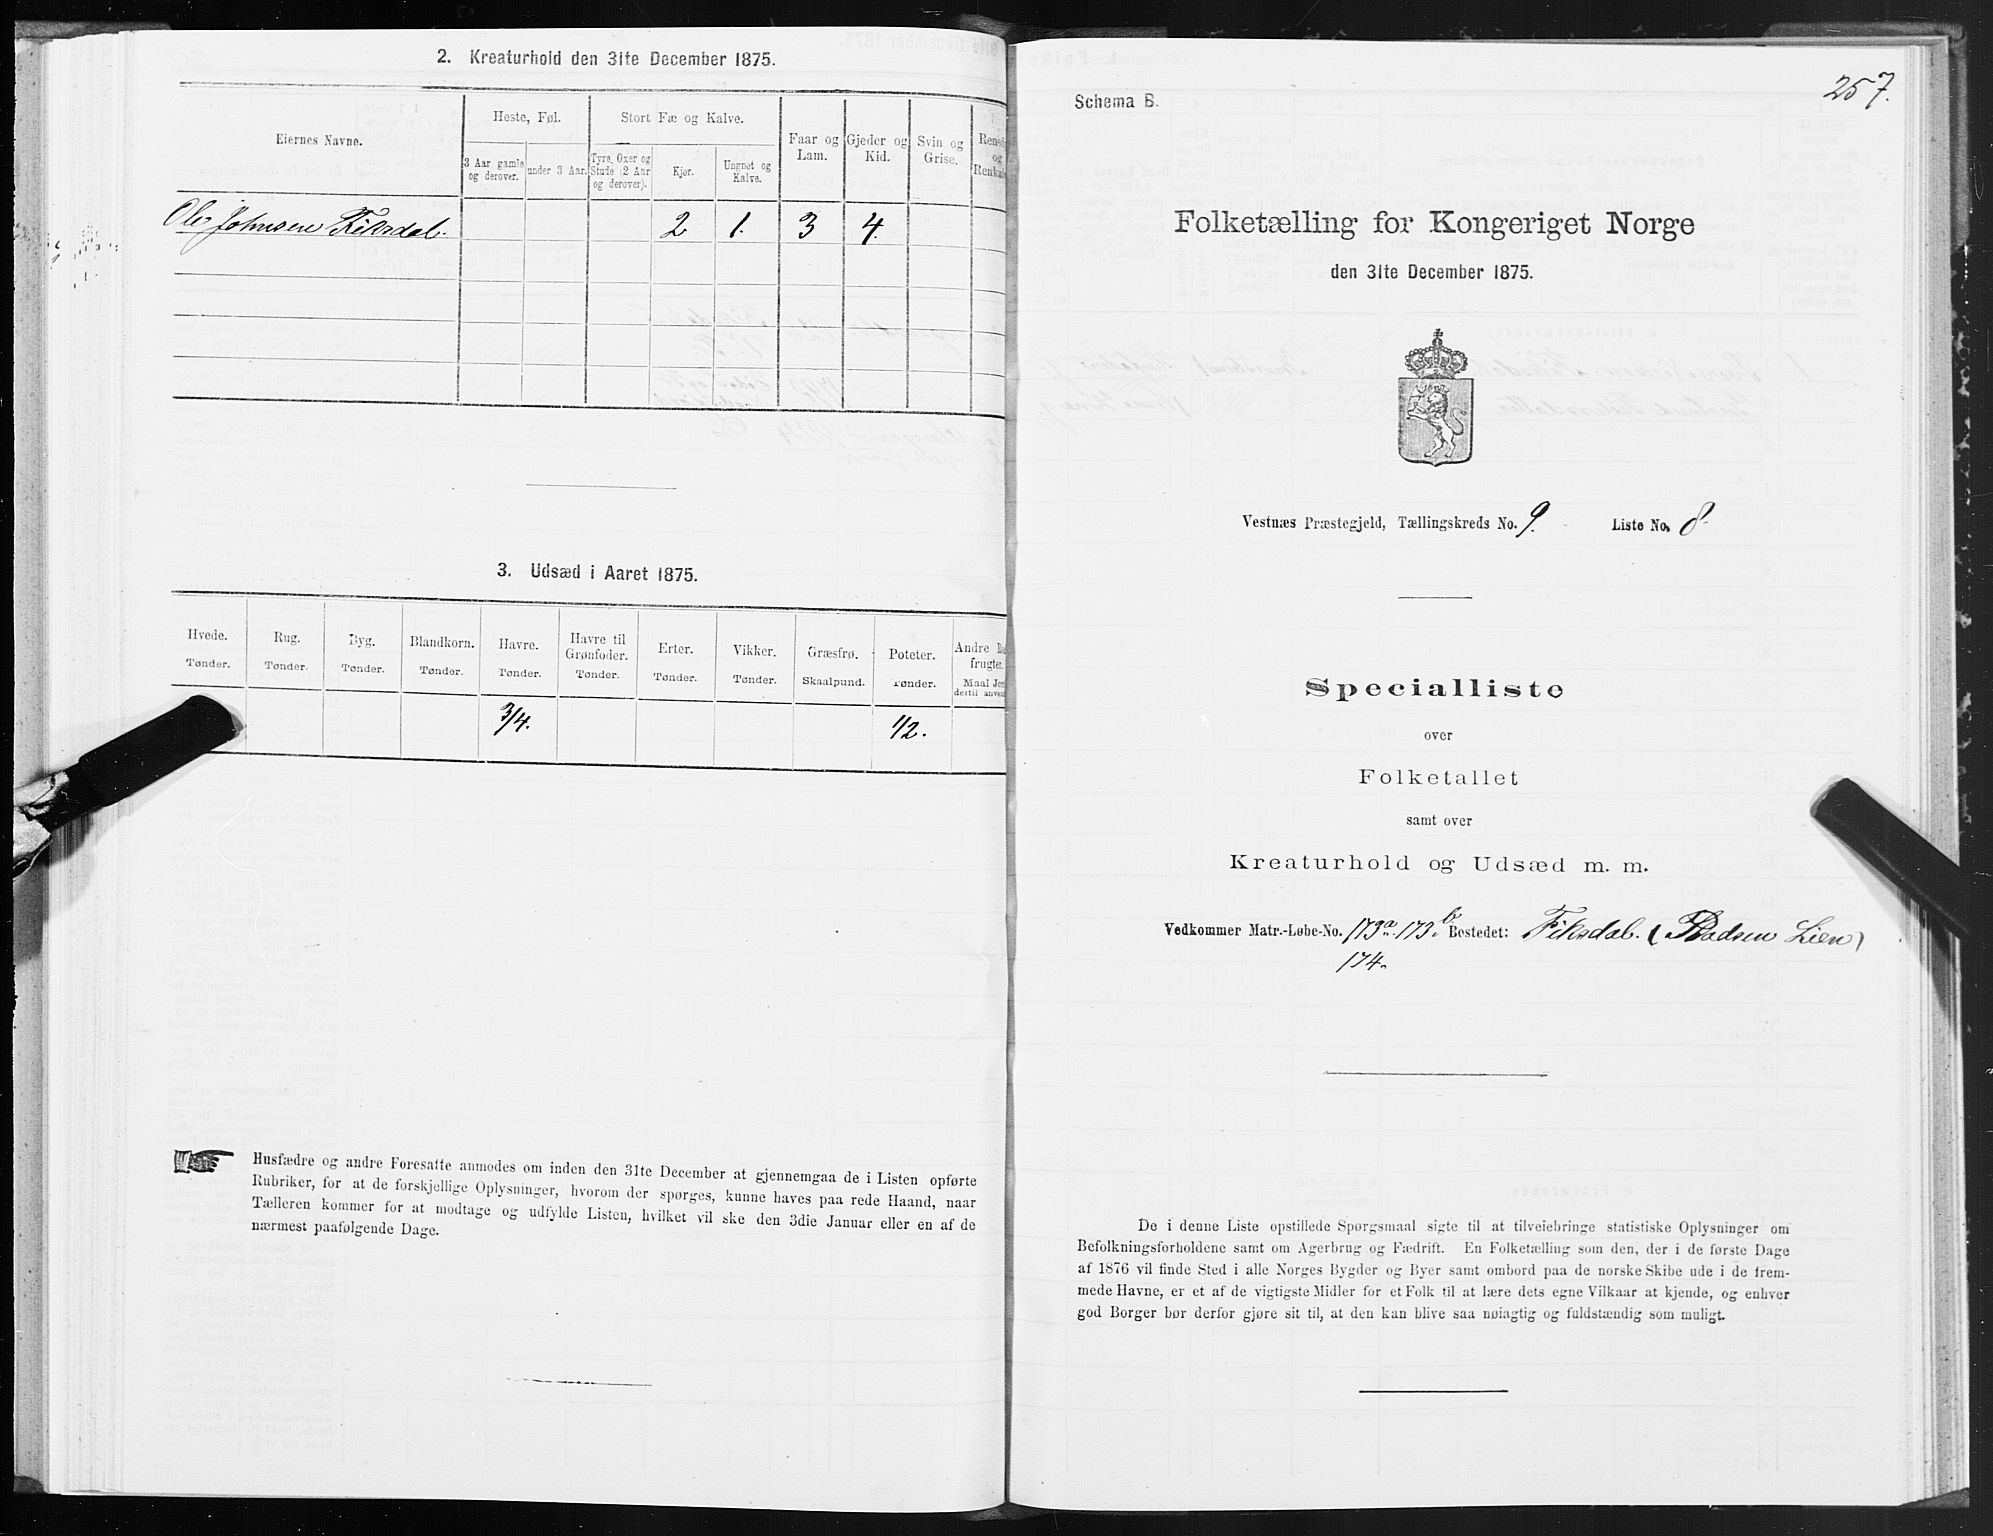 2. Kreaturhold den 31te December 1875.
Eiernes Navne.
Heste, Føl.
Stort Fæ og Kalve.
Faar og Lam.
Gjeder og Kid.
Svin og Grise.
Rensd
og
Renkal
3 Aar gamle og derover.
under 3 Aar.
Tyre, Oxer og Stude (2 Aar og derover).
Kjør.
Ungnøt og Kalve.
Ole Johnsen Fiksdal. 2 1. 3 4.
3. Udsæd i Aaret 1875.
Hvede. Rug. Byg. Blandkorn. Havre. Havre til Grønfoder. Erter. Vikker. Græsfrø. Poteter. Andre
frugter
Tønder. Tønder. Tønder. Tønder. Tønder. Tønder. Tønder. Tønder. Skaalpund. Tønder. Maal Jor
dertil anven
3/4. 1/2.
Husfædre og andre Foresatte anmodes om inden den 31te December at gjennemgaa de i Listen opførte
Rubriker, for at de forskjellige Oplysninger, hvorom der spørges, kunne haves paa rede Haand, naar
Tælleren kommer for at modtage og udfylde Listen, hvilket vil ske den 3die Januar eller en af de
nærmest paafølgende Dage.
257.
Schema B.
Folketælling for Kongeriget Norge
den 31te December 1875.
Vestnæs Præstegjeld, Tællingskreds No. 9. Liste No. 8.
Specialliste
over
Folketallet
samt over
Kreaturhold og Udsæd m. m.
Vedkommer Matr.-Løbe-No. 173a. 173b. Bostedet: Fiksdal. ( Lien)
174.
De i denne Liste opstillede Spørgsmaal sigte til at tilveiebringe statistiske Oplysninger om
Befolkningsforholdene samt om Agerbrug og Fædrift. En Folketælling som den, der i de første Dage
af 1876 vil finde Sted i alle Norges Bygder og Byer samt ombord paa de norske Skibe ude i de frem-
mede Havne, er et af de vigtigste Midler for et Folk til at lære dets egne Vilkaar at kjende, og enhver
god Borger bør derfor gjøre sit til, at den kan blive saa nøiagtig og fuldstændig som muligt.